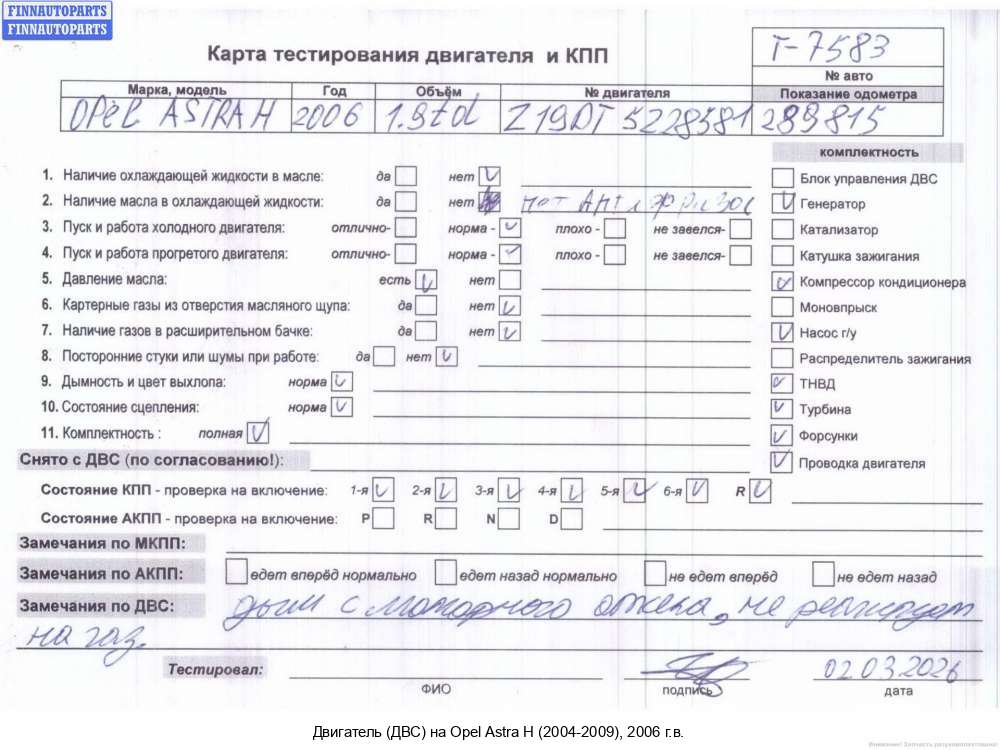 FINNAUTOPARTS
FINNAUTOPARTS
Карта тестирования двигателя и КПП
T-7583
№ авто
Марка, модель Год Объём № двигателя Показание одометра
OPEL ASTRA H 2006 1.9td Z19DT 5228581 289815
комплектность
1. Наличие охлаждающей жидкости в масле: да нет
Блок управления ДВС
2. Наличие масла в охлаждающей жидкости: да нет нет
Генератор
3. Пуск и работа холодного двигателя: отлично- норма - плохо - не завелся-
Катализатор
4. Пуск и работа прогретого двигателя: отлично- норма - плохо - не завелся-
Катушка зажигания
5. Давление масла: есть нет
Компрессор кондиционера
6. Картерные газы из отверстия масляного щупа: да нет
Моновпрыск
7. Наличие газов в расширительном бачке: да нет
Насос г/у
8. Посторонние стуки или шумы при работе: да нет
Распределитель зажигания
9. Дымность и цвет выхлопа: норма
ТНВД
10. Состояние сцепления: норма
Турбина
11. Комплектность : полная
Форсунки
Снято с ДВС (по согласованию!):
Проводка двигателя
Состояние КПП - проверка на включение: 1-я 2-я 3-я 4-я 5-я 6-я R
Состояние АКПП - проверка на включение: P R N D
Замечания по МКПП:
Замечания по АКПП: едет вперёд нормально едет назад нормально не едет вперёд не едет назад
Замечания по ДВС: дым с моторного отсека, не реагирует
на газ.
Тестировал: 02.03.2026
ФИО подпись дата
Двигатель (ДВС) на Opel Astra H (2004-2009), 2006 г.в.
Внимание! Запчасть разукомплектована!